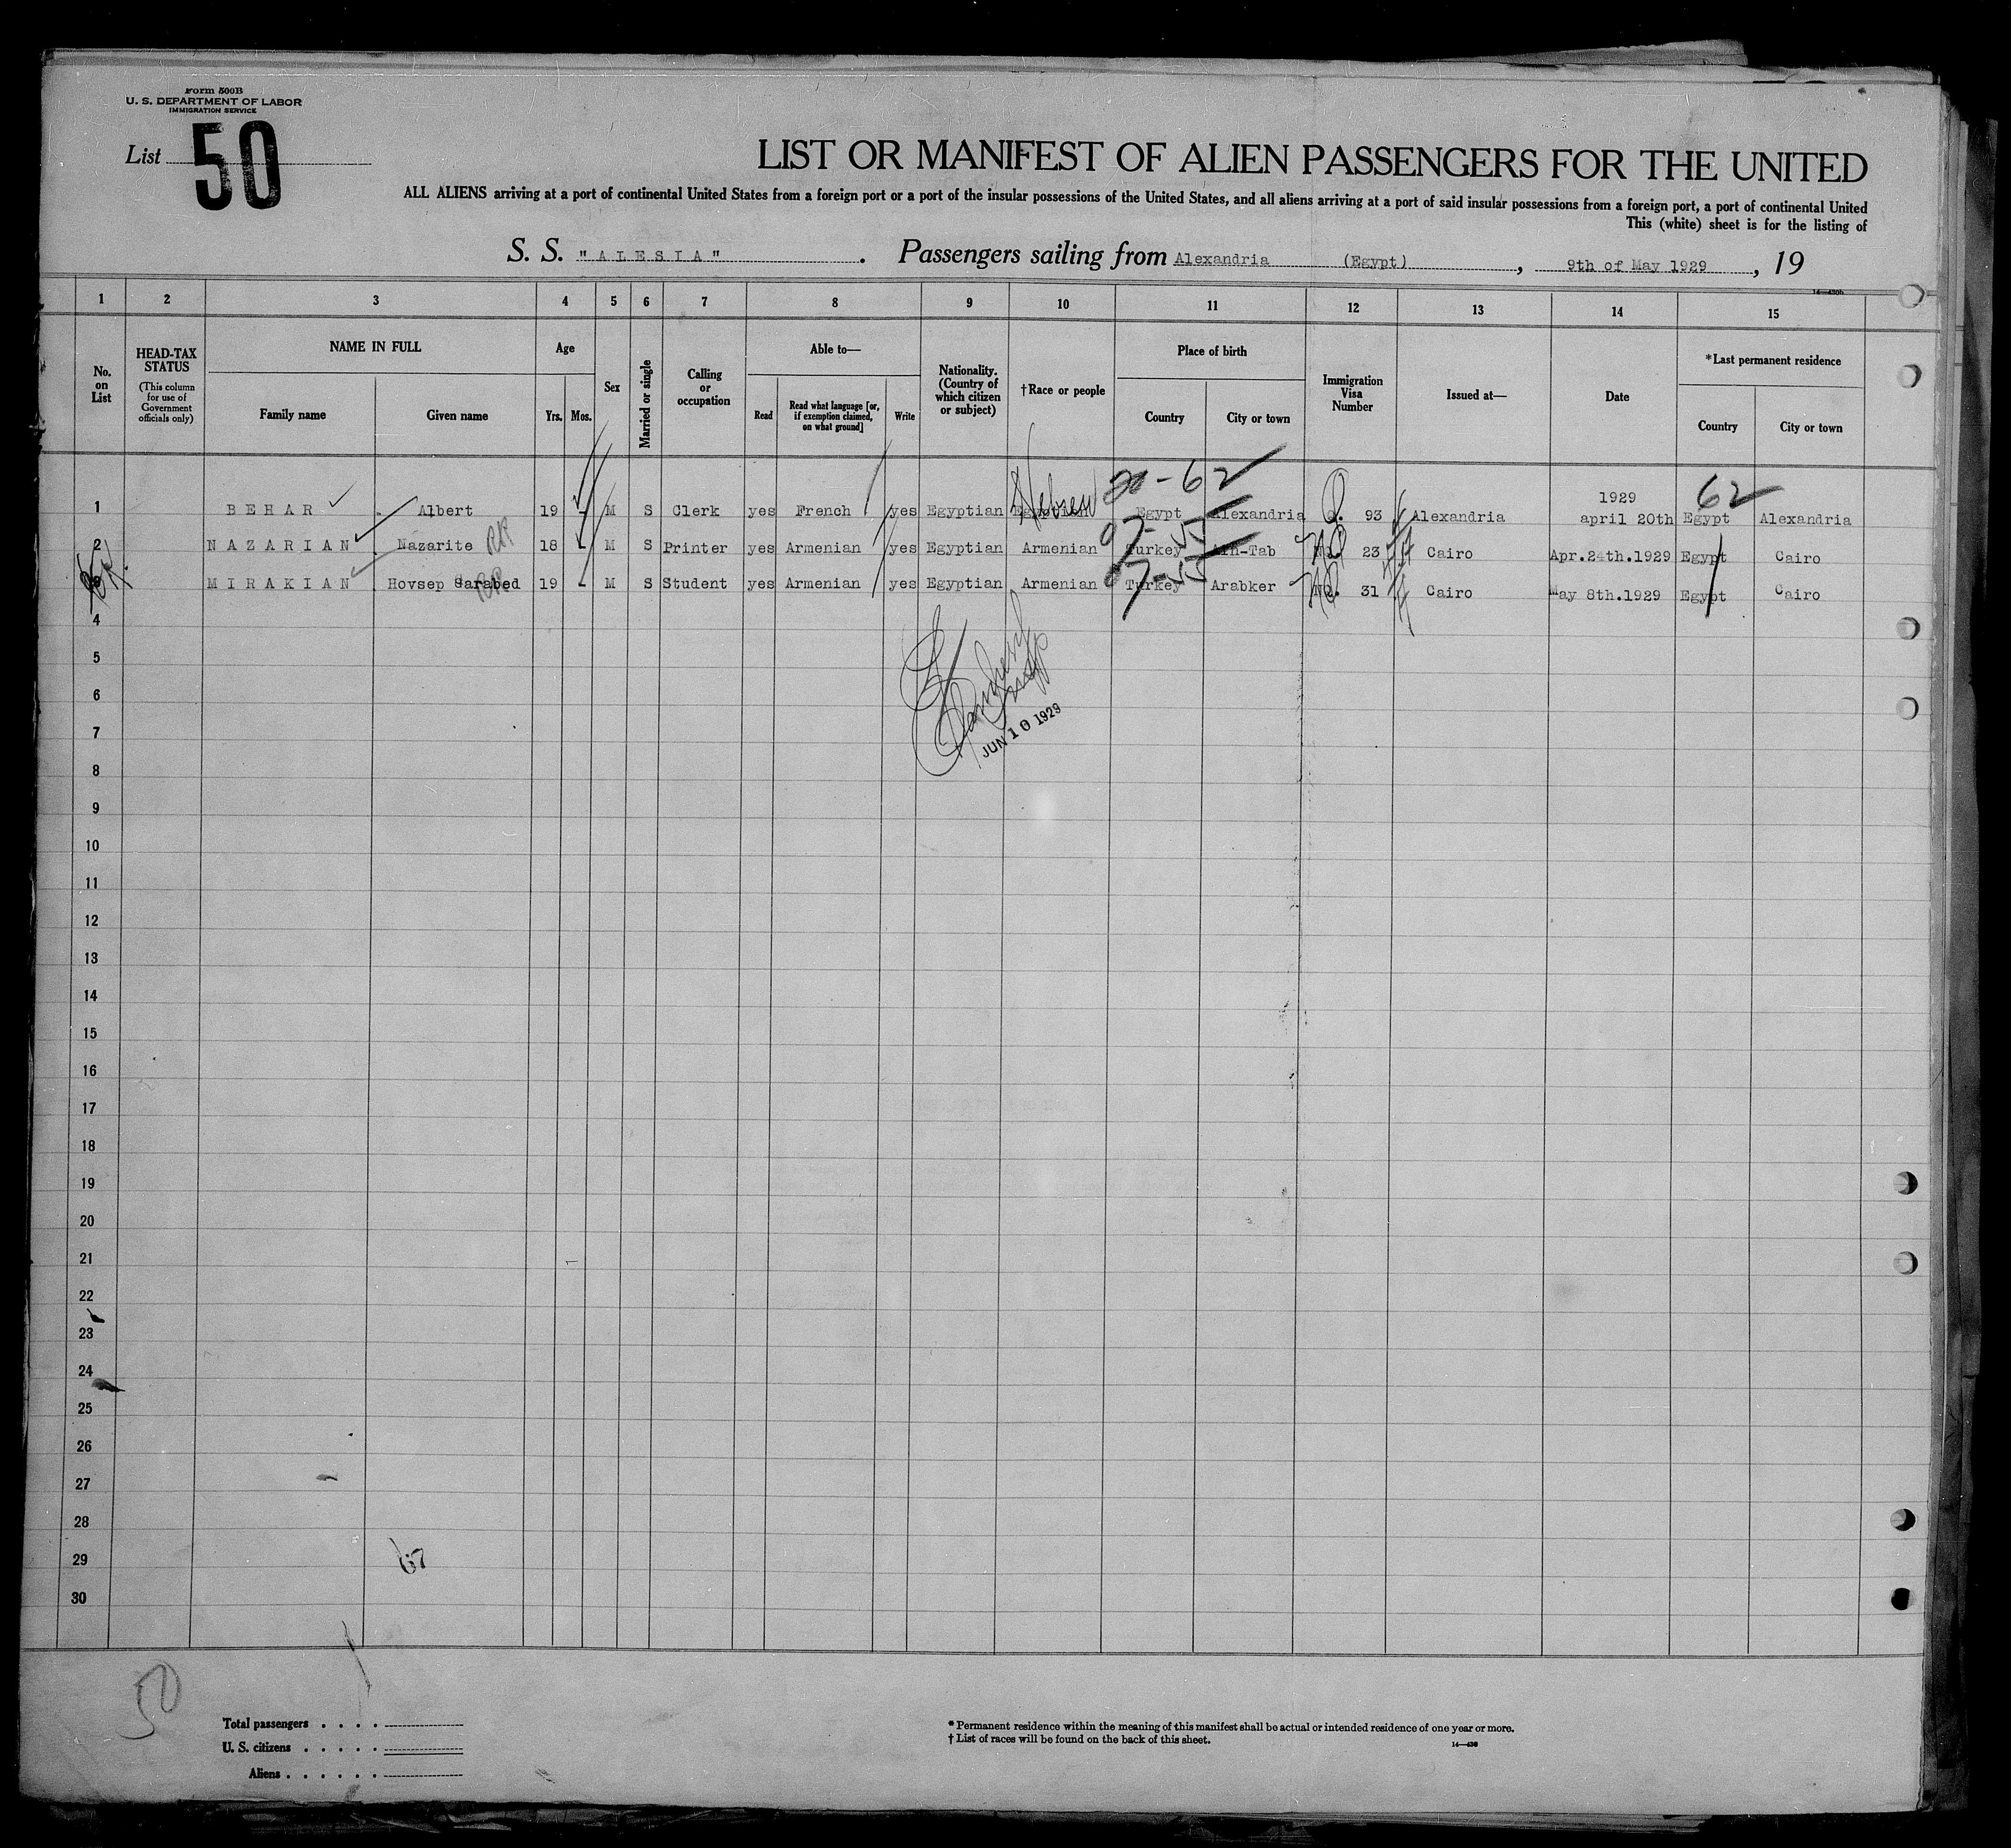 Form 500B
U. S. DEPARTMENT OF LABOR
IMMIGRATION SERVICE
List 50
LIST OR MANIFEST OF ALIEN PASSENGERS FOR THE UNITED
ALL ALIENS arriving at a port of continental United States from a foreign port or a port of the insular possessions of the United States, and all aliens arriving at a port of said insular possessions from a foreign port, a port of continental United
This (white) sheet is for the listing of
S. S. "ALESIA". Passengers sailing from Alexandria (Egypt), 9th of May 1929, 19
14—430b
1 2 3 4 5 6 7 8 9 10 11 12 13 14 15
No. on List
HEAD-TAX STATUS (This column for use of Government officials only)
NAME IN FULL
Family name
Given name
Age
Yrs. Mos.
Sex
Married or single
Calling or occupation
Able to—
Read
Read what language [or, if exemption claimed, on what ground]
Write
Nationality. (Country of which citizen or subject)
†Race or people
Place of birth
Country
City or town
Immigration Visa Number
Issued at—
Date
*Last permanent residence
Country
City or town
20-62 62
1 BEHAR Albert 19 - M S Clerk yes French yes Egyptian Egyptian Hebrew Egypt Alexandria Q. 93 Alexandria 1929 april 20th Egypt Alexandria
07-55
2 NAZARIAN Nazarite 18 - M S Printer yes Armenian yes Egyptian Armenian Turkey Ain-Tab No. 23 Cairo Apr.24th.1929 Egypt Cairo
07-55
3 MIRAKIAN Hovsep Sarabed 19 - M S Student yes Armenian yes Egyptian Armenian Turkey Arabker No. 31 Cairo May 8th.1929 Egypt Cairo
4
5
6
7
JUN 10 1929
8
9
10
11
12
13
14
15
16
17
18
19
20
21
22
23
24
25
26
27
28
29 67
30
50
Total passengers . . . .
U. S. citizens . . . . .
Aliens . . . . . .
* Permanent residence within the meaning of this manifest shall be actual or intended residence of one year or more.
† List of races will be found on the back of this sheet.
14—430